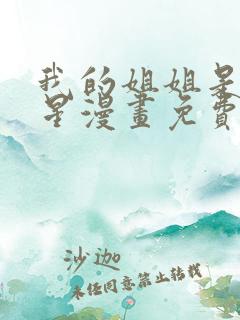 我的姐姐是
星漫畫免費
沙迦
未任同意禁止转载